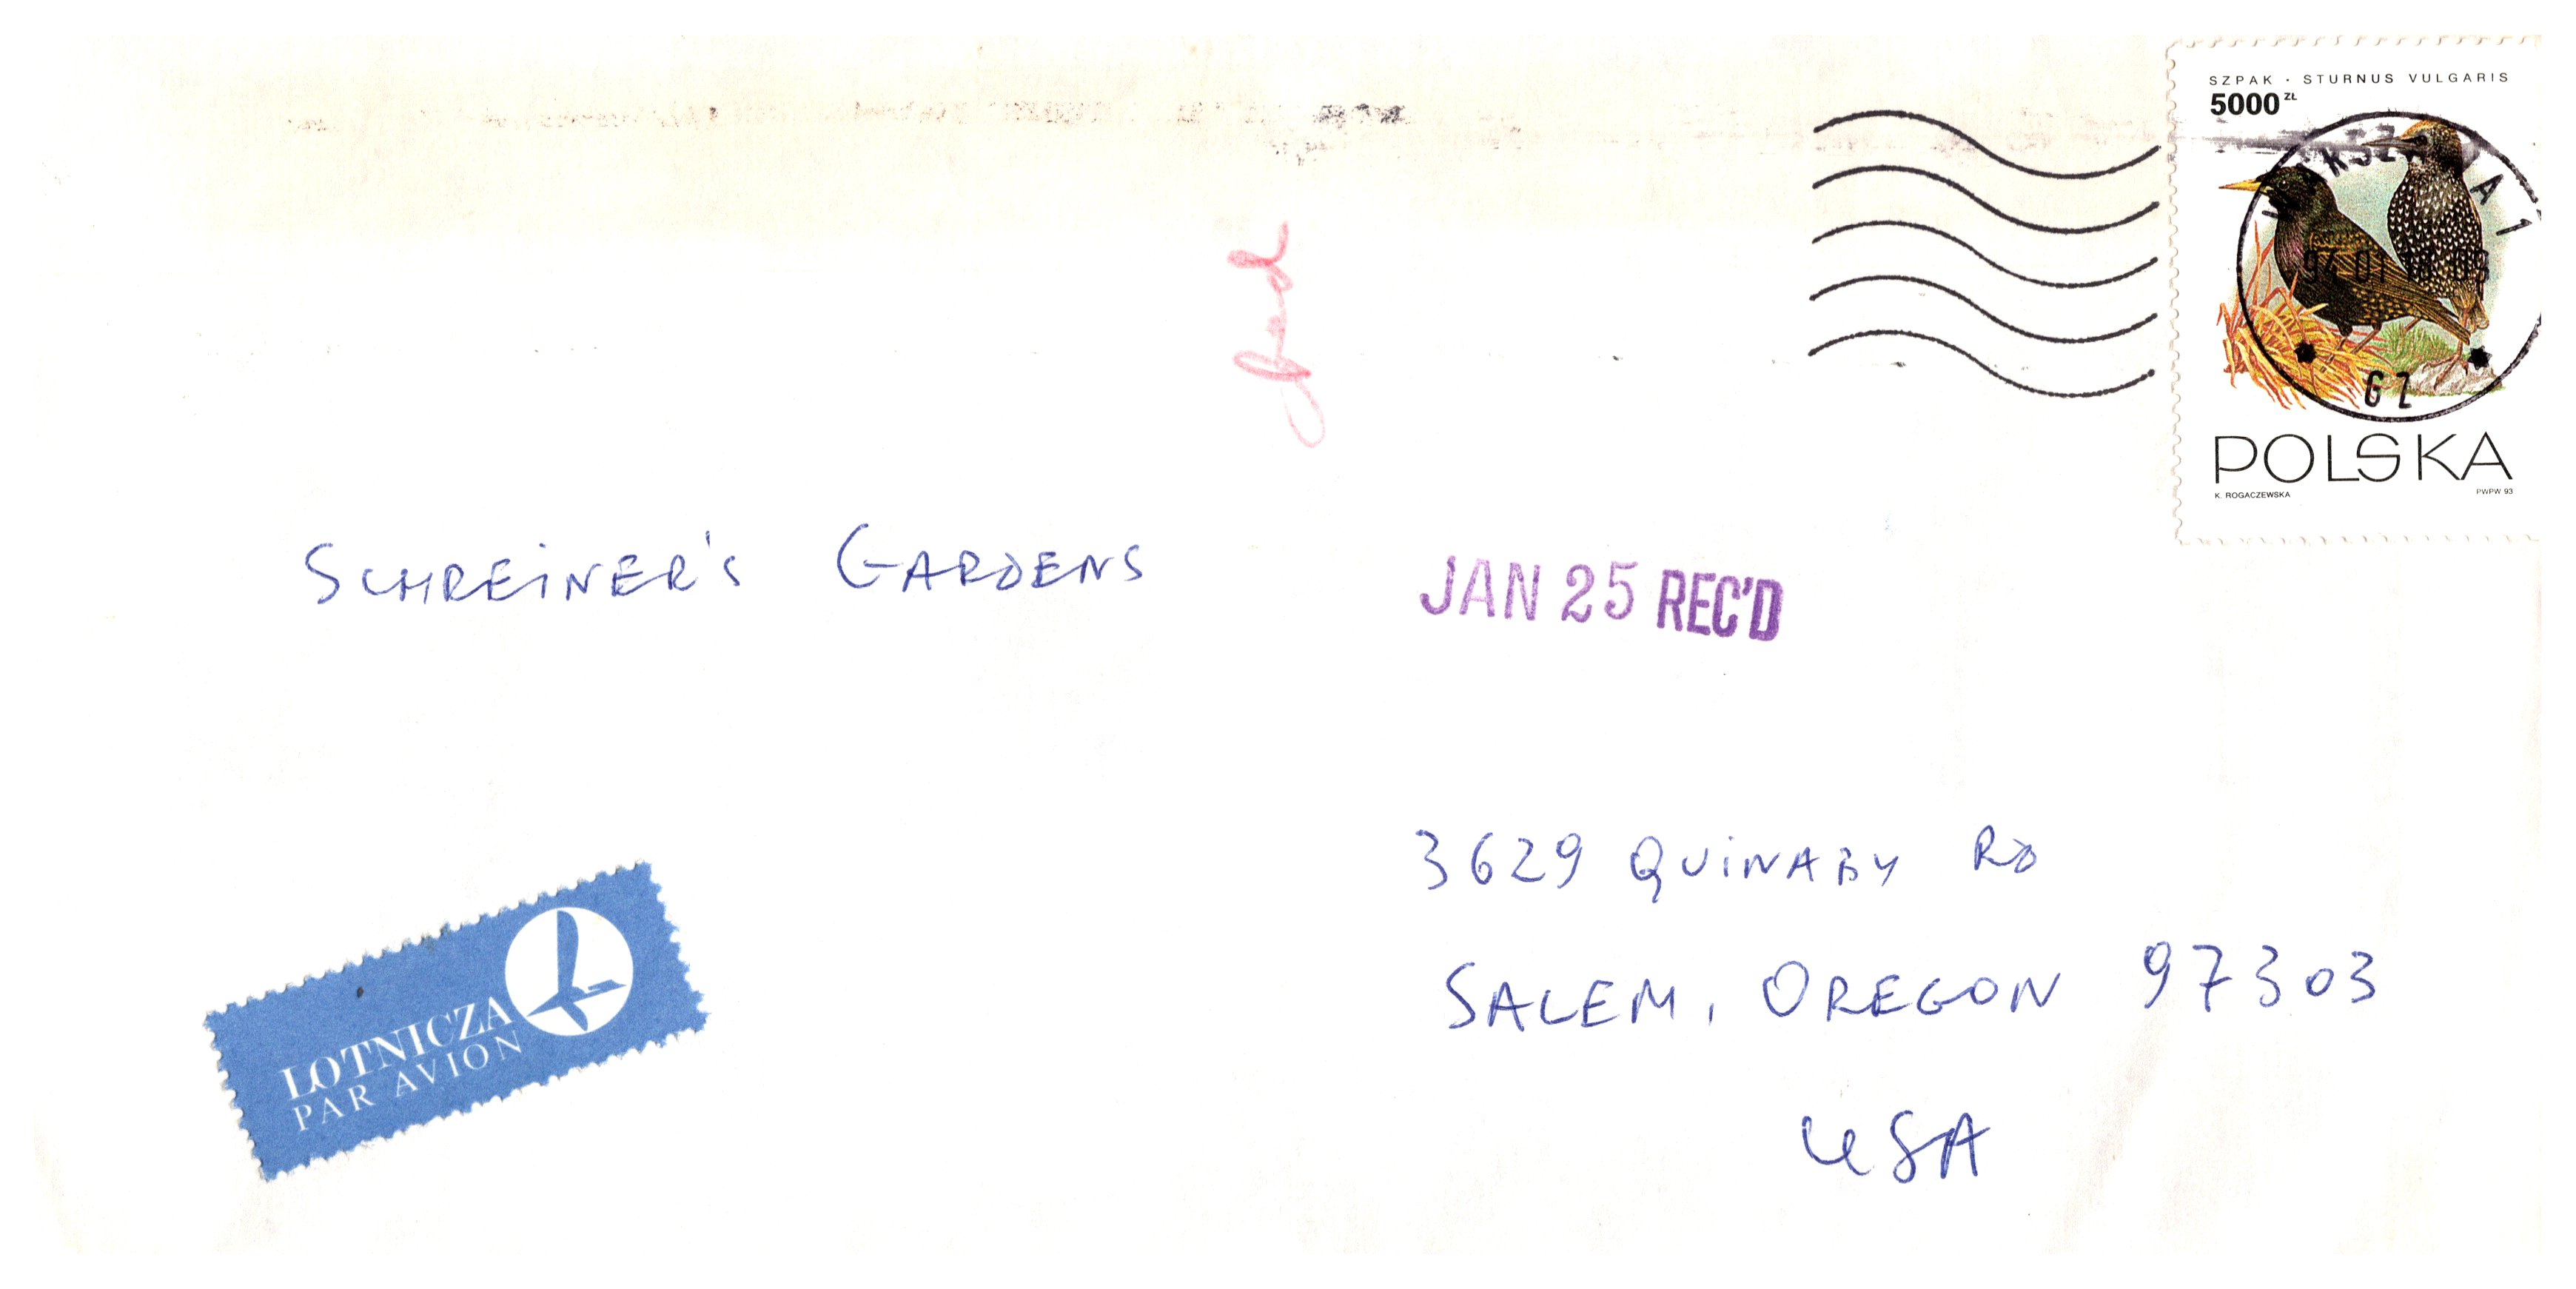 SZPAK · STURNUS VULGARIS
5000 ZŁ
GZ
POLSKA
K. ROGACZEWSKA PWPW 93
SCHREINER'S GARDENS
JAN 25 REC'D
3629 QUINABY RD
SALEM, OREGON 97303
USA
LOTNICZA
PAR AVION